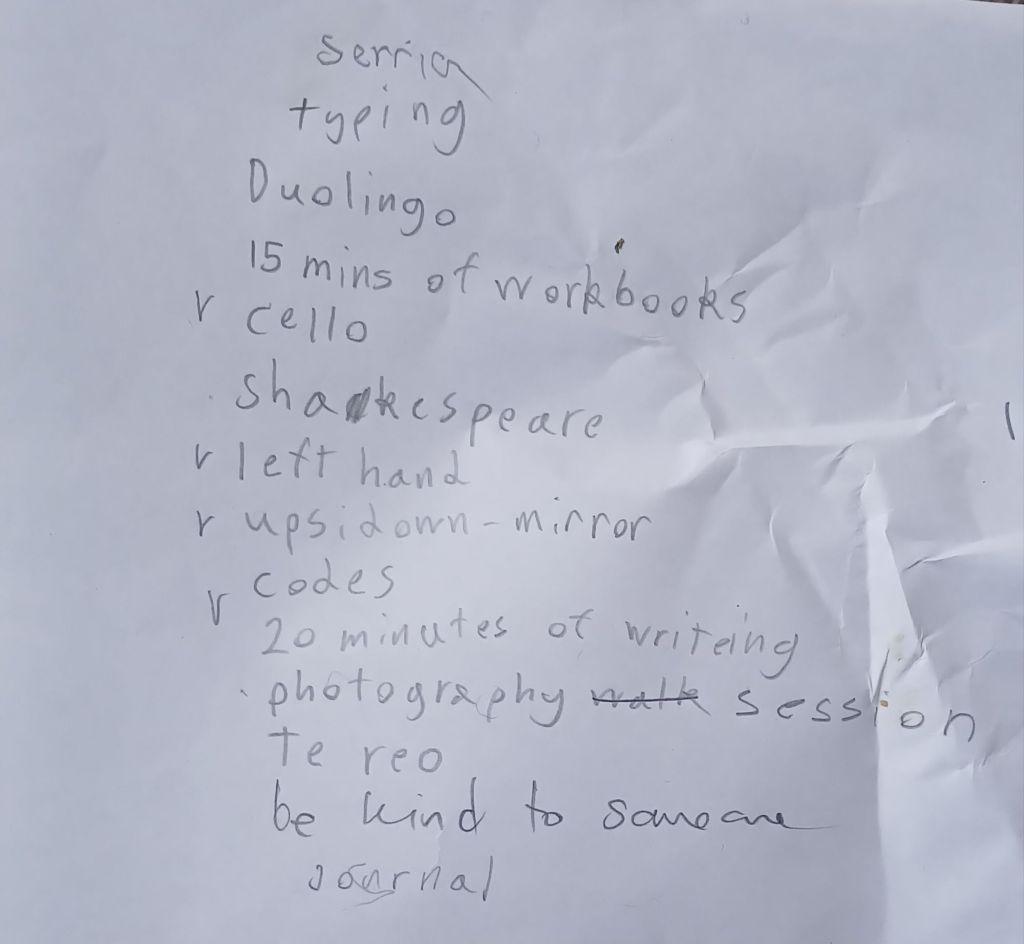 Serria
typing
Duolingo
15 mins of workbooks
cello
shakespeare
left hand
upsidown-mirror
codes
20 minutes of writeing
photography walk session
Te reo
be kind to someone
Journal